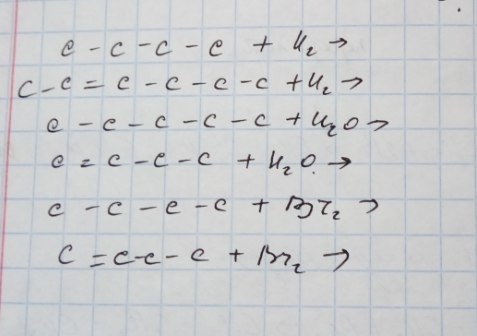 C - C - C - C + H₂ →
C - C = C - C - C - C + H₂ →
C - C - C - C - C + H₂O →
C = C - C - C + H₂O. →
C - C - C - C + Br₂ →
C = C - C - C + Br₂ →